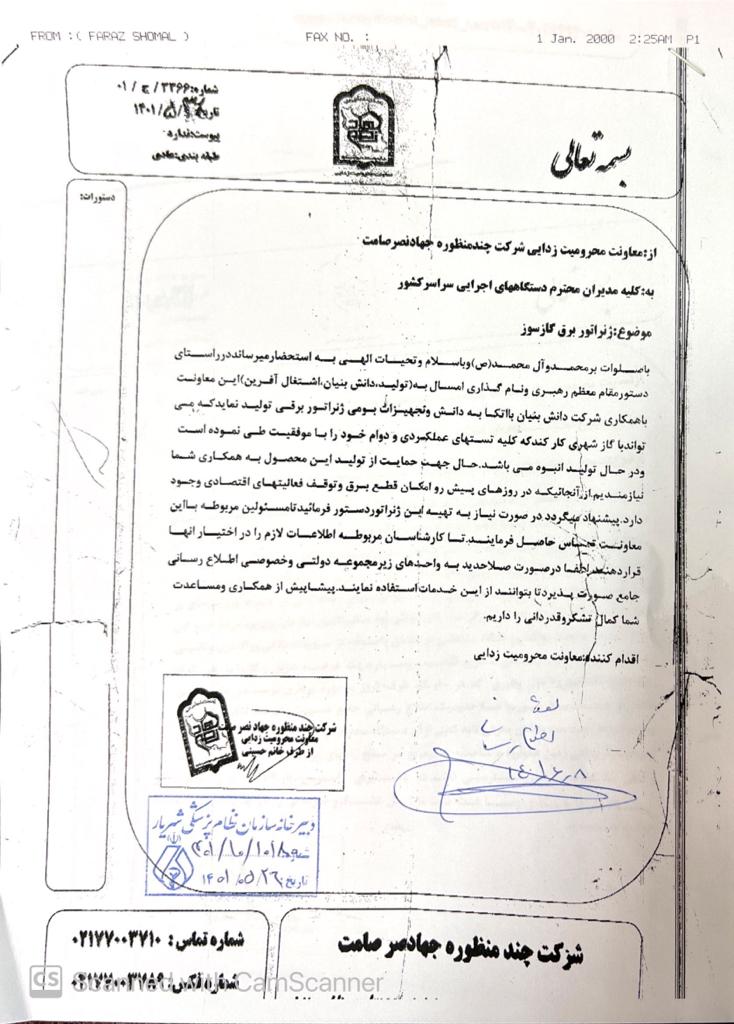 FROM :( FARAZ SHOMAL )
FAX NO. :
1 Jan. 2000 2:25AM P1
شماره:۳۳۶۶/ج/۰۱
تاریخ
پیوست:ندارد
طبقه بندی:عادی
بسمه تعالی
دستورات:
از:معاونت محرومیت زدایی شرکت چندمنظوره جهادنصرصامت
به:کلیه مدیران محترم دستگاههای اجرایی سراسرکشور
موضوع:ژنراتور برق گازسوز
باصلوات برمحمدوآل محمد(ص)وباسلام وتحیات الهی به استحضارمیرسانددرراستای
دستورمقام معظم رهبری ونام گذاری امسال به(تولید،دانش بنیان،اشتغال آفرین)این معاونت
باهمکاری شرکت دانش بنیان بااتکا به دانش وتجهیزات بومی ژنراتور برقی تولید نمایدکه می
تواندبا گاز شهری کار کندکه کلیه تستهای عملکردی و دوام خود را با موفقیت طی نموده است
ودر حال تولید انبوه می باشد.حال جهت حمایت از تولید این محصول به همکاری شما
نیازمندیم.از آنجائیکه در روزهای پیش رو امکان قطع برق وتوقف فعالیتهای اقتصادی وجود
دارد.پیشنهاد میگردد در صورت نیاز به تهیه این ژنراتوردستور فرمائیدتامسئولین مربوطه بااین
معاونت تماس حاصل فرمایند.تا کارشناسان مربوطه اطلاعات لازم را در اختیار انها
قراردهند.لطفا درصورت صلاحدید به واحدهای زیرمجموعه دولتی وخصوصی اطلاع رسانی
جامع صورت پذیردتا بتوانند از این خدمات استفاده نمایند.پیشاپیش از همکاری ومساعدت
شما کمال تشکروقدردانی را داریم.
اقدام کننده:معاونت محرومیت زدایی
شرکت چند منظوره جهاد نصر صامت
معاونت محرومیت زدایی
از طرف خانم حسینی
دبیرخانه سازمان نظام پزشکی شهریار
شماره:
تاریخ: ۱۴۰۱/۰۵/۲۶
شماره تماس : ۰۲۱۷۷۰۰۳۷۱۰
شماره فکس: ۰۲۱۷۷۰۰۳۷۵۹
شزکت چند منظوره جهادصر صامت
CS Scanned with CamScanner